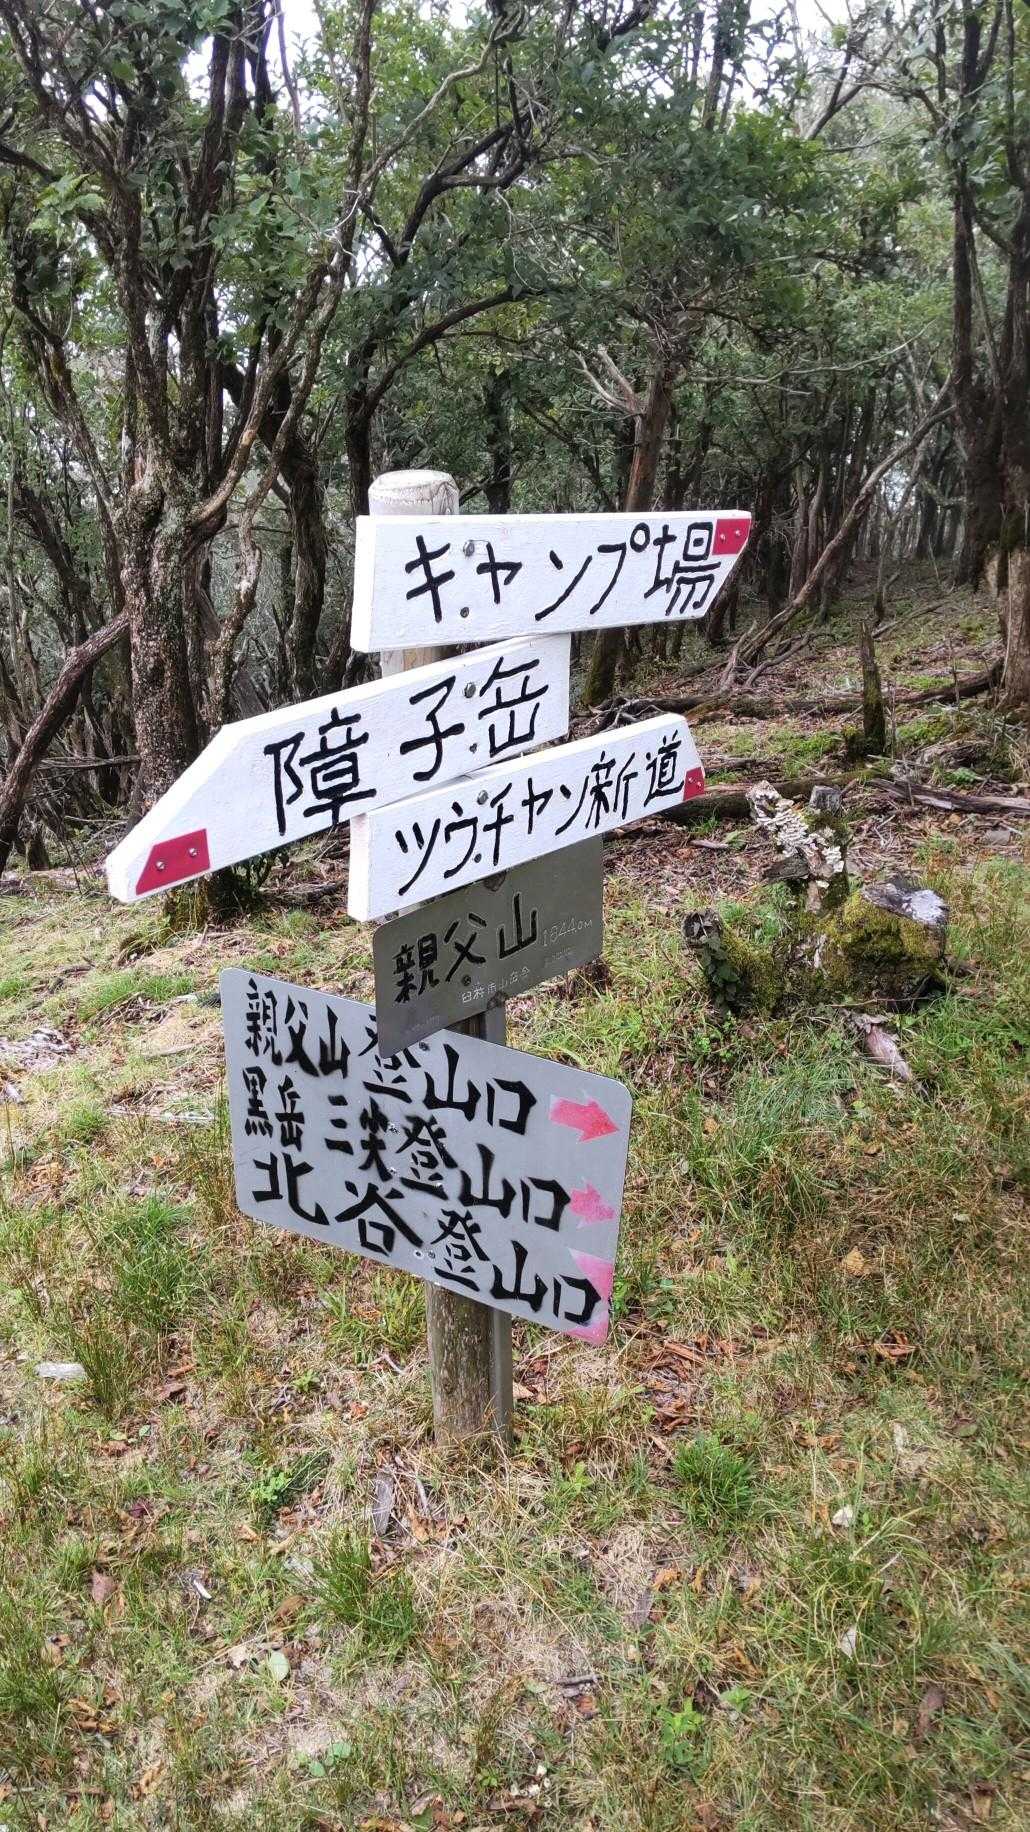 キャンプ場
障子岳
ツヴチャン新道
親父山 1644.0M
臼杵市山岳会
親父山登山口
黒岳三尖登山口
北谷登山口